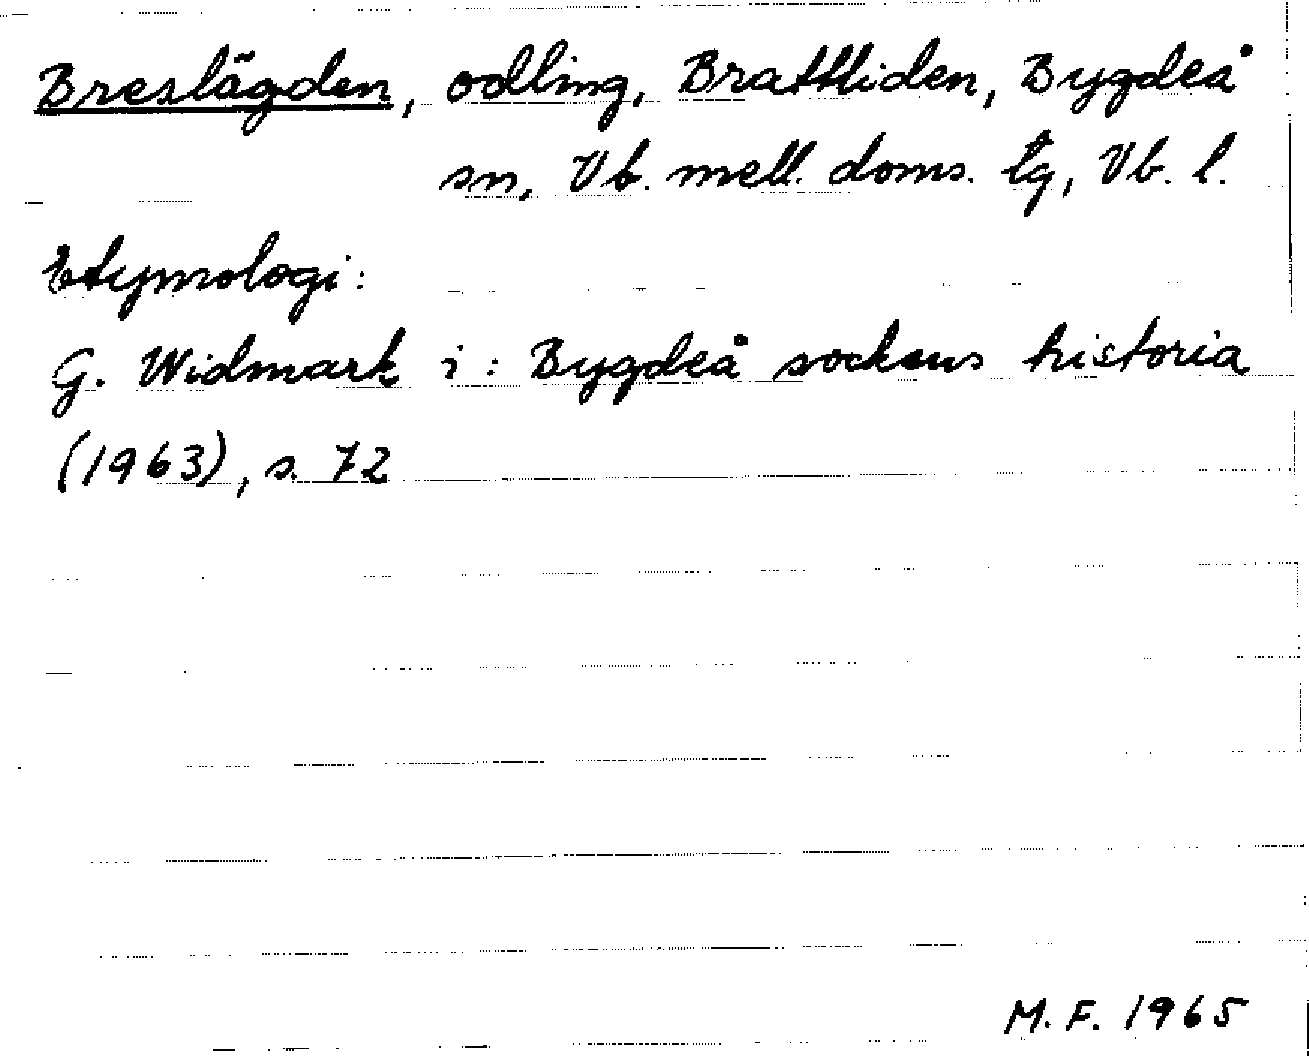 Breslägden, odling, Brattliden, Bygdeå
sn, Vb. mell. doms. tg, Vb. l.
Etymologi:
G. Widmark i: Bygdeå sockens historia
(1963), s. 72
M. F. 1965